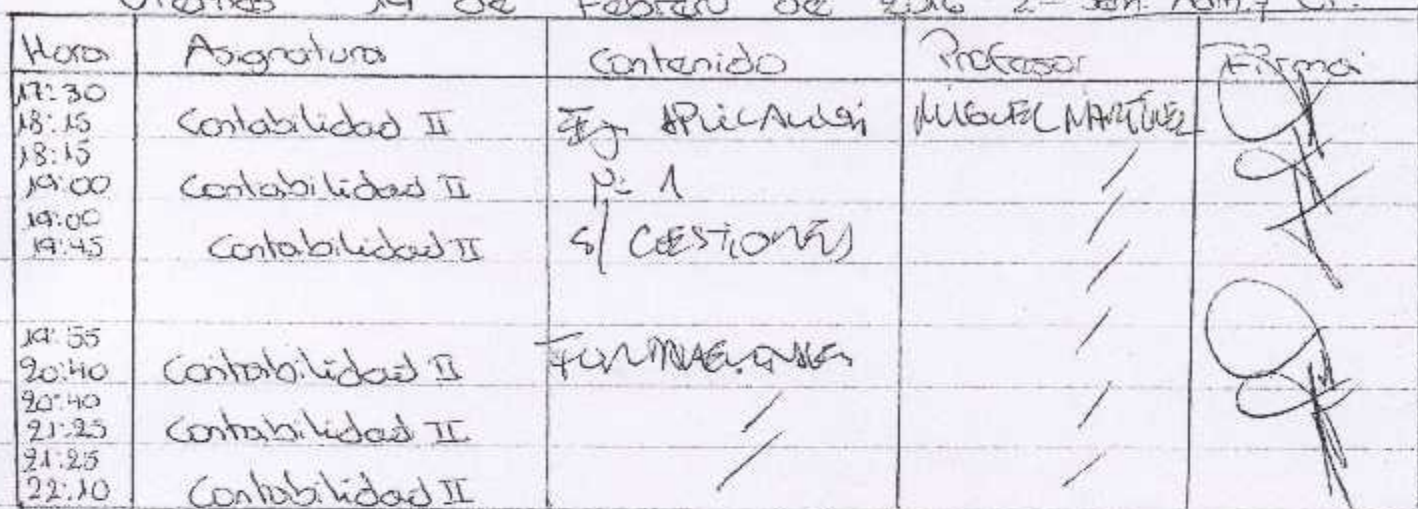 Viernes 19 de Febrero de 2016 2º Sem.
Hora Asignatura Contenido Profesor Firma
17:30
18:15 Contabilidad II Ej. APLICACIÓN MIGUEL MARTÍNEZ
18:15
19:00 Contabilidad II Nº 1 /
19:00
19:45 Contabilidad II s/ CUESTIONES /
/
19:55
20:40 Contabilidad II /
20:40
21:25 Contabilidad II / /
21:25
22:10 Contabilidad II / /